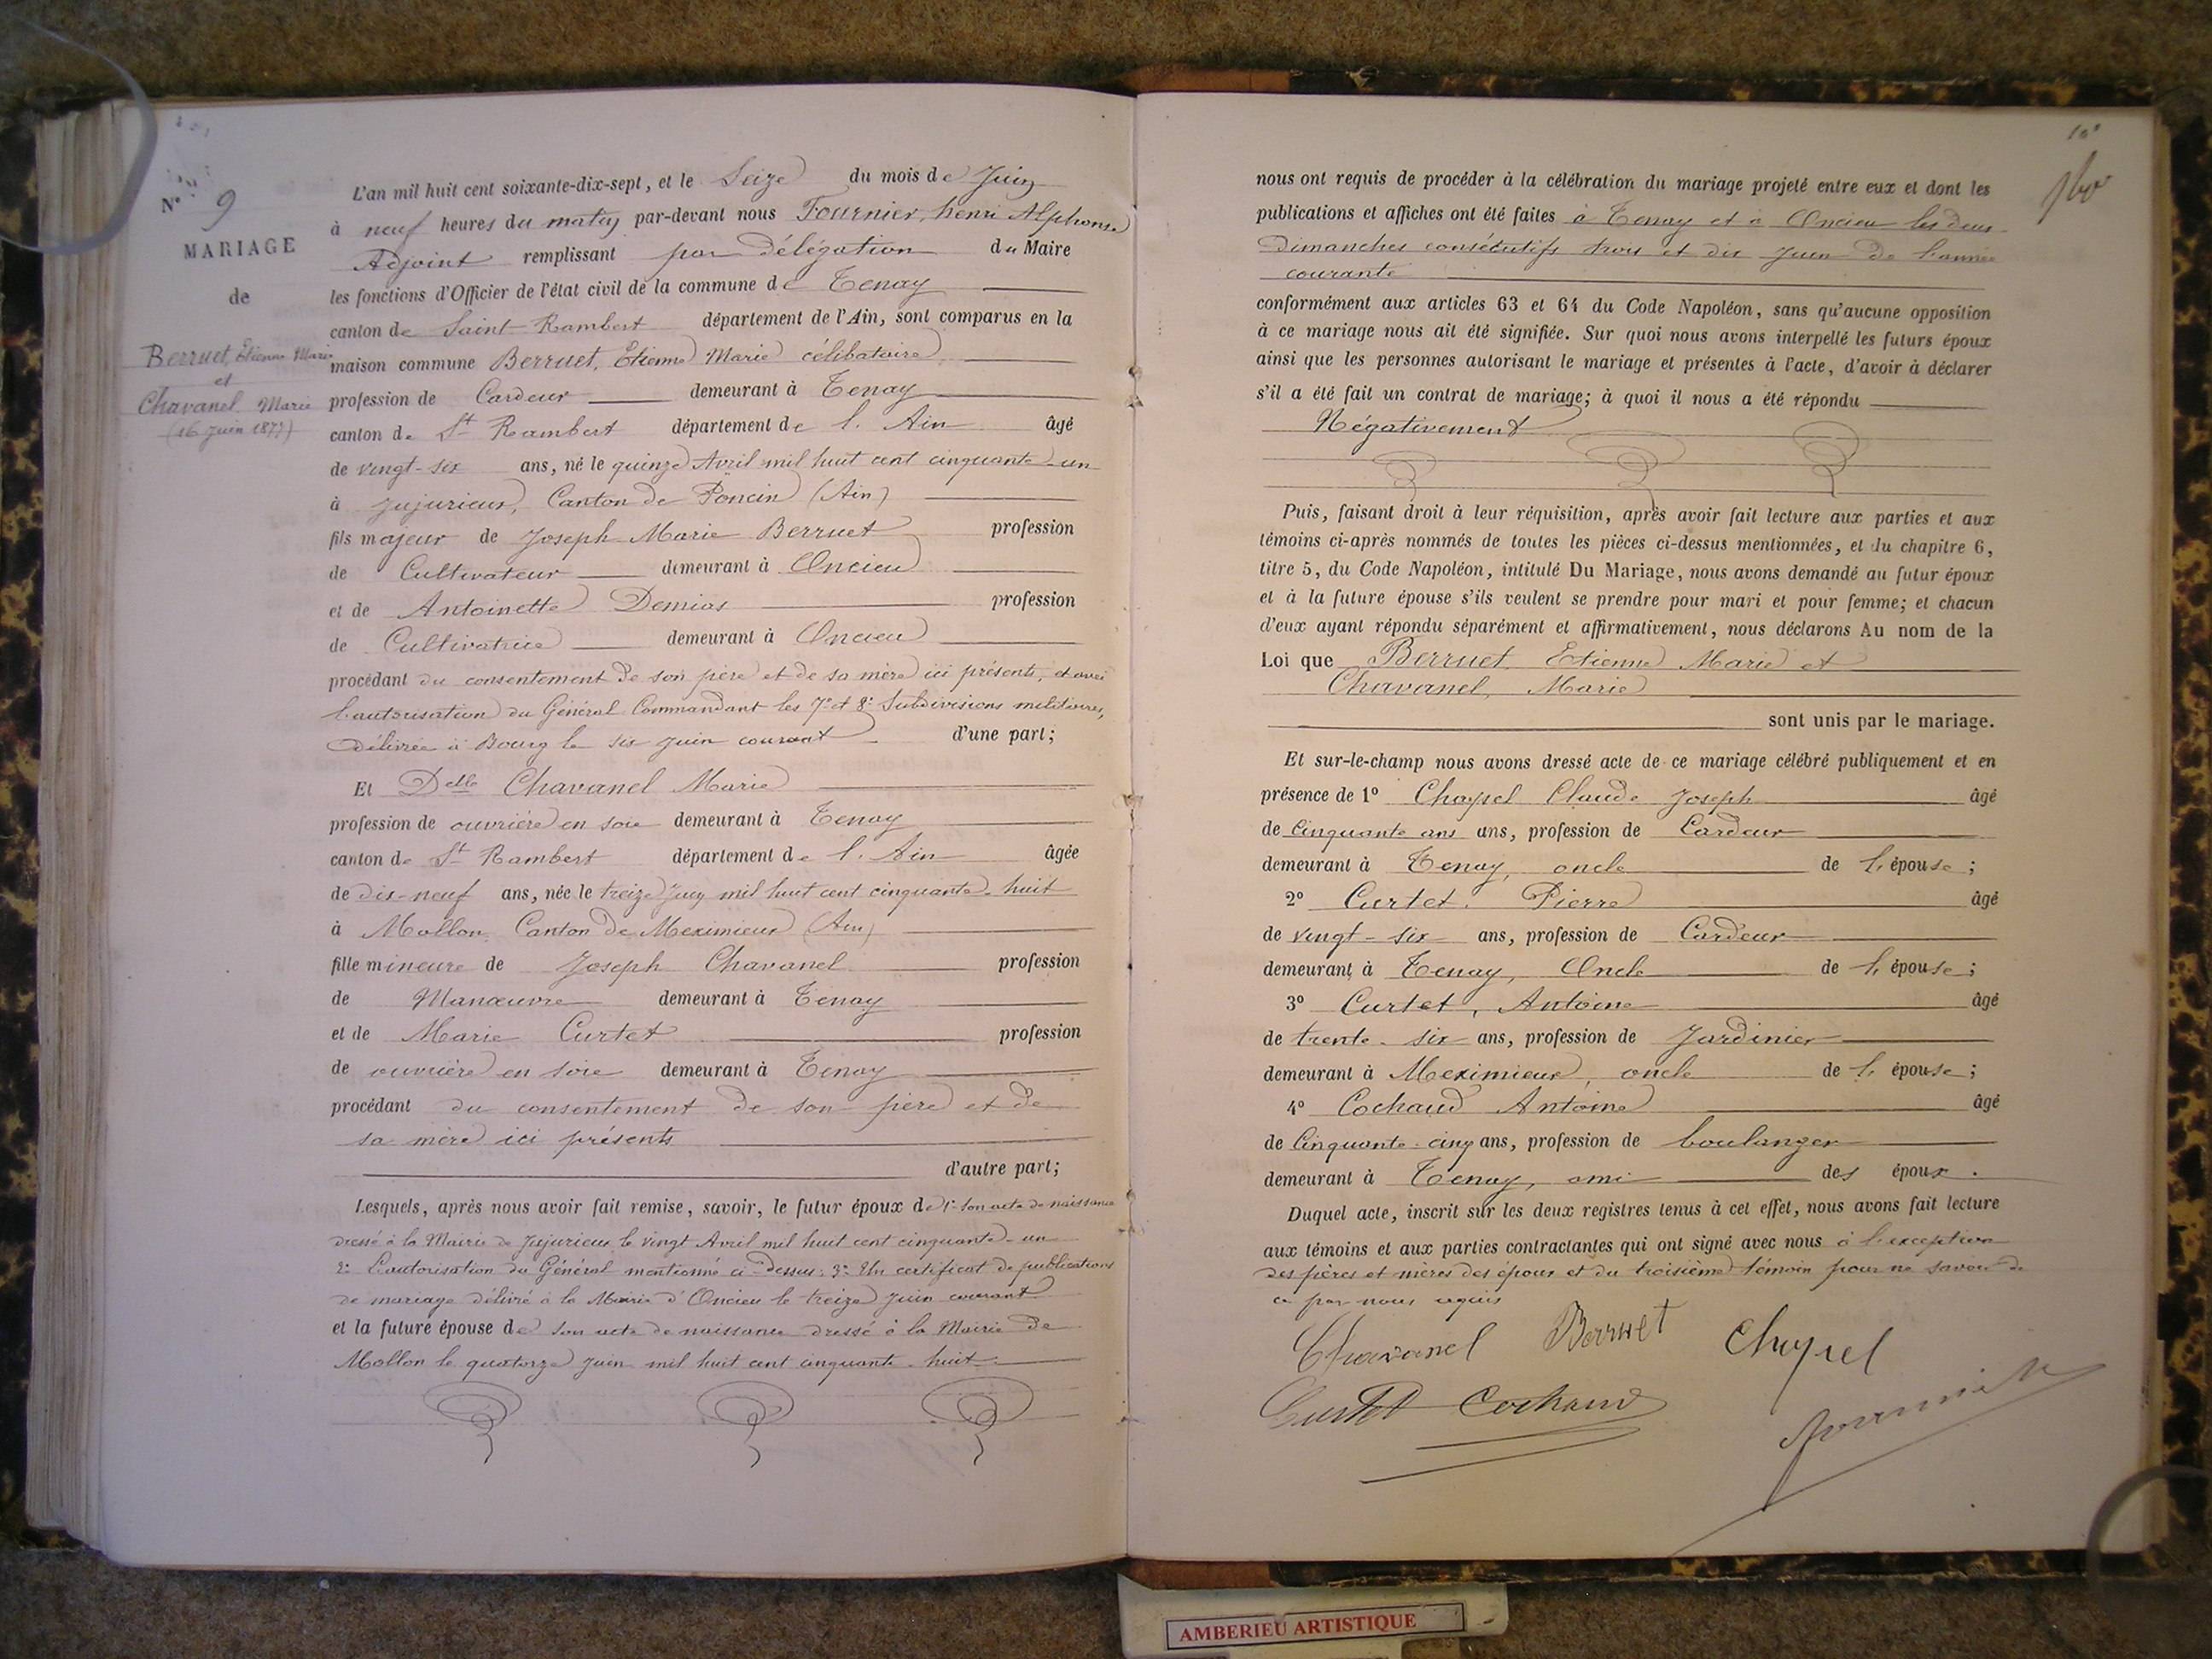 N° 9
MARIAGE
de
Berruet, Etienne Marie
et
Chavanel Marie
(16 Juin 1877)
L'an mil huit cent soixante-dix-sept, et le Seize du mois de Juin
à neuf heures du matin par-devant nous Fournier, henri Alphonse
Adjoint remplissant par délégation du Maire
les fonctions d'Officier de l'état civil de la commune de Tenay
canton de Saint-Rambert département de l'Ain, sont comparus en la
maison commune Berruet, Etienne Marie célibataire
profession de Cardeur demeurant à Tenay
canton de St Rambert département de l'Ain âgé
de vingt-six ans, né le quinze Avril mil huit cent cinquante-un
à Jujurieux, Canton de Poncin (Ain)
fils majeur de Joseph Marie Berruet profession
de Cultivateur demeurant à Oncieu
et de Antoinette Demias profession
de Cultivatrice demeurant à Oncieu
procédant du consentement de son père et de sa mère ici présents, et avec
l'autorisation du Général Commandant les 7e et 8e Subdivisions militaires,
délivrée à Bourg le six juin courant d'une part;
Et Delle Chavanel Marie
profession de ouvrière en soie demeurant à Tenay
canton de St Rambert département de l'Ain âgée
de dix-neuf ans, née le treize Juin mil huit cent cinquante-huit
à Mollon Canton de Meximieux (Ain)
fille mineure de Joseph Chavanel profession
de Manœuvre demeurant à Tenay
et de Marie Curtet profession
de ouvrière en soie demeurant à Tenay
procédant du consentement de son père et de
sa mère ici présents
d'autre part;
Lesquels, après nous avoir fait remise, savoir, le futur époux de 1° son acte de naissance
dressé à la Mairie de Jujurieux le vingt Avril mil huit cent cinquante-un
2° L'autorisation du Général mentionné ci-dessus; 3° Un certificat de publications
de mariage délivré à la Mairie d'Oncieu le treize juin courant
et la future épouse de son acte de naissance dressé à la Mairie de
Mollon le quatorze juin mil huit cent cinquante-huit
nous ont requis de procéder à la célébration du mariage projeté entre eux et dont les
publications et affiches ont été faites à Tenay et à Oncieu les deux
Dimanches consécutifs trois et dix Juin de l'année
courante
conformément aux articles 63 et 64 du Code Napoléon, sans qu'aucune opposition
à ce mariage nous ait été signifiée. Sur quoi nous avons interpellé les futurs époux
ainsi que les personnes autorisant le mariage et présentes à l'acte, d'avoir à déclarer
s'il a été fait un contrat de mariage; à quoi il nous a été répondu
Négativement
Puis, faisant droit à leur réquisition, après avoir fait lecture aux parties et aux
témoins ci-après nommés de toutes les pièces ci-dessus mentionnées, et du chapitre 6,
titre 5, du Code Napoléon, intitulé Du Mariage, nous avons demandé au futur époux
et à la future épouse s'ils veulent se prendre pour mari et pour femme; et chacun
d'eux ayant répondu séparément et affirmativement, nous déclarons Au nom de la
Loi que Berruet Etienne Marie et
Chavanel, Marie
sont unis par le mariage.
Et sur-le-champ nous avons dressé acte de ce mariage célébré publiquement et en
présence de 1° Chapel Claude Joseph âgé
de Cinquante ans ans, profession de Cardeur
demeurant à Tenay, oncle de l'épouse;
2° Curtet Pierre âgé
de vingt-six ans, profession de Cardeur
demeurant à Tenay, Oncle de l'épouse;
3° Curtet, Antoine âgé
de trente-six ans, profession de Jardinier
demeurant à Meximieux, oncle de l'épouse;
4° Cochaud Antoine âgé
de Cinquante-cinq ans, profession de boulanger
demeurant à Tenay, ami des époux.
Duquel acte, inscrit sur les deux registres tenus à cet effet, nous avons fait lecture
aux témoins et aux parties contractantes qui ont signé avec nous à l'exception
des pères et mères des époux et du troisième témoin pour ne savoir de
ce par nous requis
Chavanel Berruet
Curtet Cochaud
AMBERIEU ARTISTIQUE